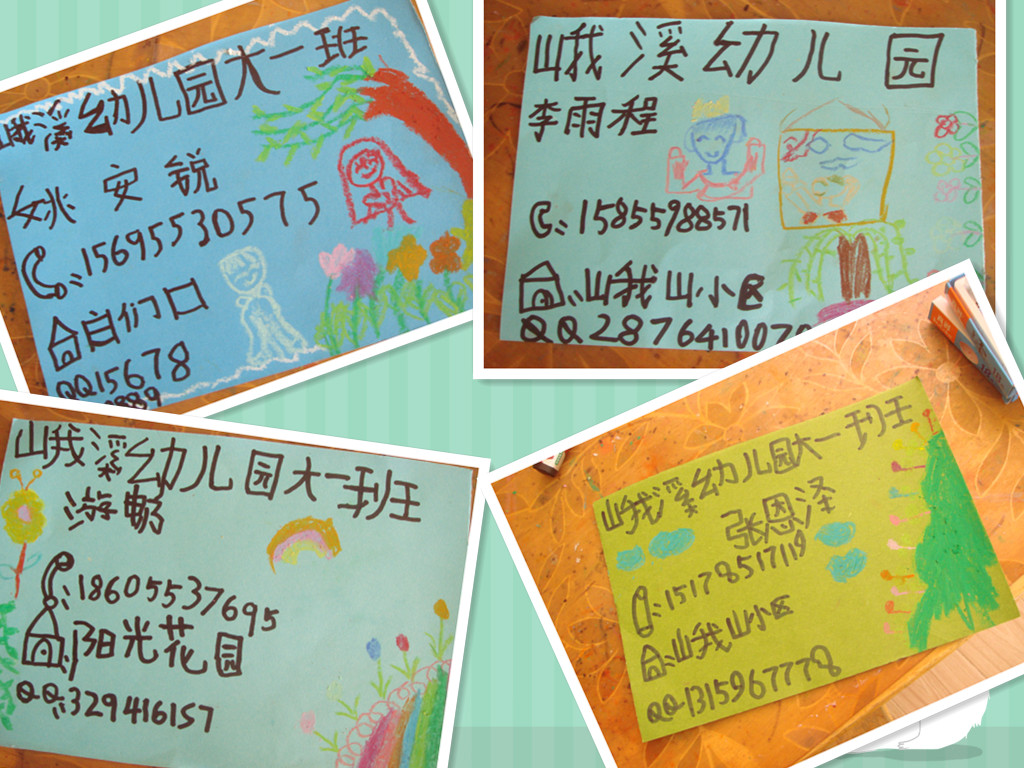 峨溪幼儿园大一班
姚安锐
15695530575
白们口
QQ15678
峨溪幼儿园
李雨程
15855988571
峨山小区
QQ287641007
峨溪幼儿园大一班
游畅
18605537695
阳光花园
QQ:329416157
峨溪幼儿园大一班
张恩泽
15178517119
峨山小区
QQ1315967778